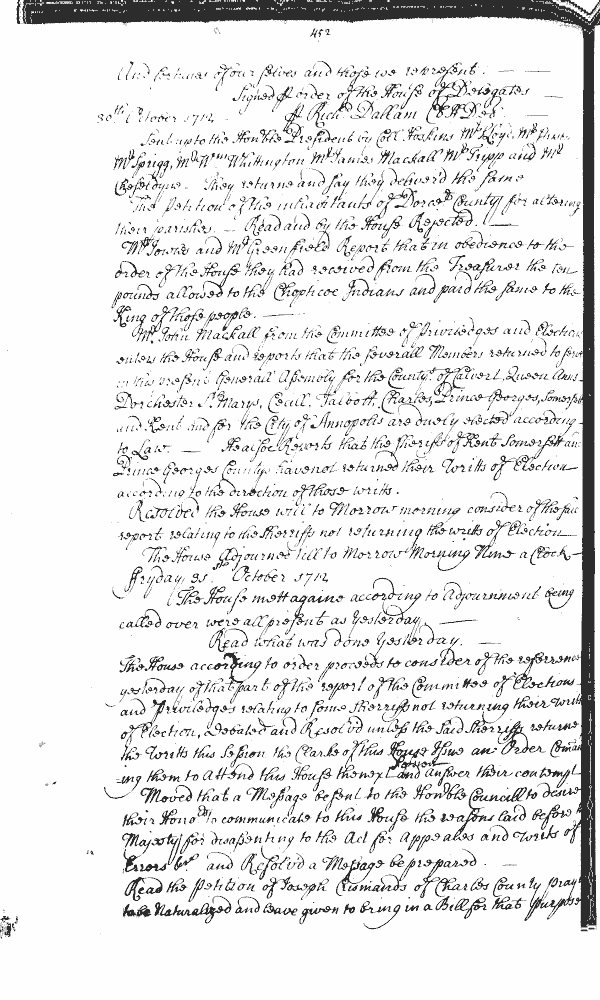 452
And fortunes of our selves and those we represent. — —
Signed p order of the House of Delegates —
30th October 1712 p Richd Dallam Cl H Del
Sent up to the Honble President by Coll Hoskins Mr Lloyd, Mr
Mr Sprigg, Mr Wm Whittington Mr James Mackall Mr Tripp and Mr
Cheseldyne. They returne and say they deliverd the same
The Petition of the inhabitants of Dorcet County for altering
their parishes. — Read and by the House Rejected. —
Mr Jowles and Mr Greenfield Report that in obedience to the
order of the House they had received from the Treasurer the ten
pounds allowed to the Chopticoe Indians and paid the same to the
King of those people. —
Mr John Mackall from the Committee of Priviledges and Election
enters the House and reports that the severall Members returned to serve
in this present Generall Assembly for the County of Calvert, Queen Anns
Dorchester St Marys, Cecill, Talbott, Charles, Prince Georges, Somersett
and Kent and for the City of Annopolis are duely elected according
to Law. — He also Reports that the sheriffs of Kent Somersett an
Prince Georges County have not returned their Writts of Election
according to the direction of those writts.
Resolved the House will to Morrow morning consider of the said
report relating to the Sherriffs not returning the writts of Election
The House Adjourned till to Morrow Morning Nine a Clock
ffryday 31st October 1712
The House mett againe according to Adjournment being
called over were all present as Yesterday —
Read what was done Yesterday. —
The House according to order proceeds to consider of the referrence
yesterday of that part of the report of the Committee of Elections
and Priviledges relating to some Sherriffs not returning their Writts
of Election, Debated and Resolvd unless the said Sherriffs returne
the Writts this Session the Clarke of this House Issue an Order Coman
ing them to Attend this House thenext Session and Answer their contempt
Moved that a Message be sent to the Honble Councill to desire
their Honrs to communicate to this House the reasons laid before
Majesty for disassenting to the Act for Appeales and Writts of
Errors &c and Resolvd a Message be prepared. —
Read the Petition of Joseph of Charles County pray
to be Naturalized and leave given to bring in a Bill for that purpose